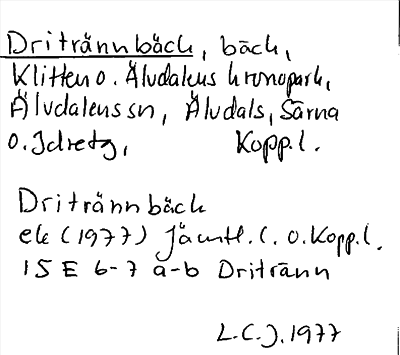 Dritrännbäck, bäck,
Klitten o. Äludalens kronopark,
Älvdalens sn, Älvdals, Särna
o. Idretg, Kopp.l.
Dritrännbäck
ek (1977) Jämtl.l. o. Kopp.l.
15 E 6-7 a-b Dritränn
L.C.J. 1977